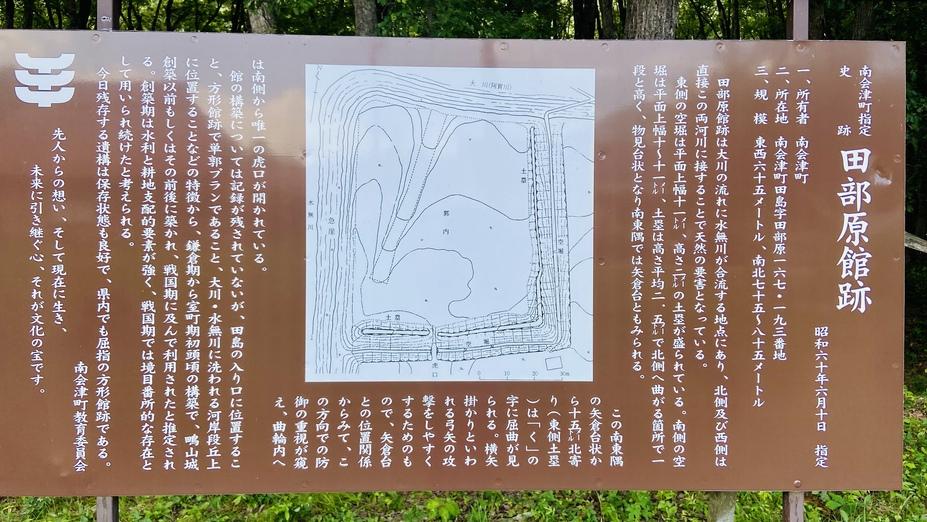 南会津町指定
史跡 田部原館跡
昭和六十年六月十日 指定
一、所有者 南会津町
二、所在地 南会津町田島字田部原一六七・一九三番地
三、規模 東西六十五メートル、南北七十五〜八十五メートル
田部原館跡は大川の流れに水無川が合流する地点にあり、北側及び西側は
直接この両河川に接することで天然の要害となっている。
東側の空堀は平面上幅十一㍍、高さ二㍍の土塁が盛られている。南側の空
堀は平面上幅十〜十一㍍、土塁は高さ平均二、五㍍で北側へ曲がる箇所で一
段と高く、物見台状となり南東隅では矢倉台ともみられる。
この南東隅
の矢倉台状か
ら十五㍍北寄
り(東側土塁
)は「く」の
字に屈曲が見
られる。横矢
掛かりといわ
れる弓矢の攻
撃をしやすく
するためのも
ので、矢倉台
との位置関係
からみて、こ
の方向での防
御の重視が窺
え、曲輪内へ
は南側から唯一の虎口が開かれている。
館の構築については記録が残されていないが、田島の入り口に位置するこ
と、方形館跡で単郭プランであること、大川・水無川に洗われる河岸段丘上
に位置することなどの特徴から、鎌倉期から室町期初頭の構築で、鴫山城
創築以前もしくはその前後に築かれ、戦国期に及んで利用されたと推定され
る。創築期は水利と耕地支配的要素が強く、戦国期では境目番所的な存在と
して用いられ続けたと考えられる。
今日残存する遺構は保存状態も良好で、県内でも屈指の方形館跡である。
南会津町教育委員会
先人からの想い、そして現在に生き、
未来に引き継ぐ心、それが文化の宝です。
大川(阿賀川)
水無川
急崖
郭内
土塁
空堀
土塁
空堀
虎口
0 10 20 30m